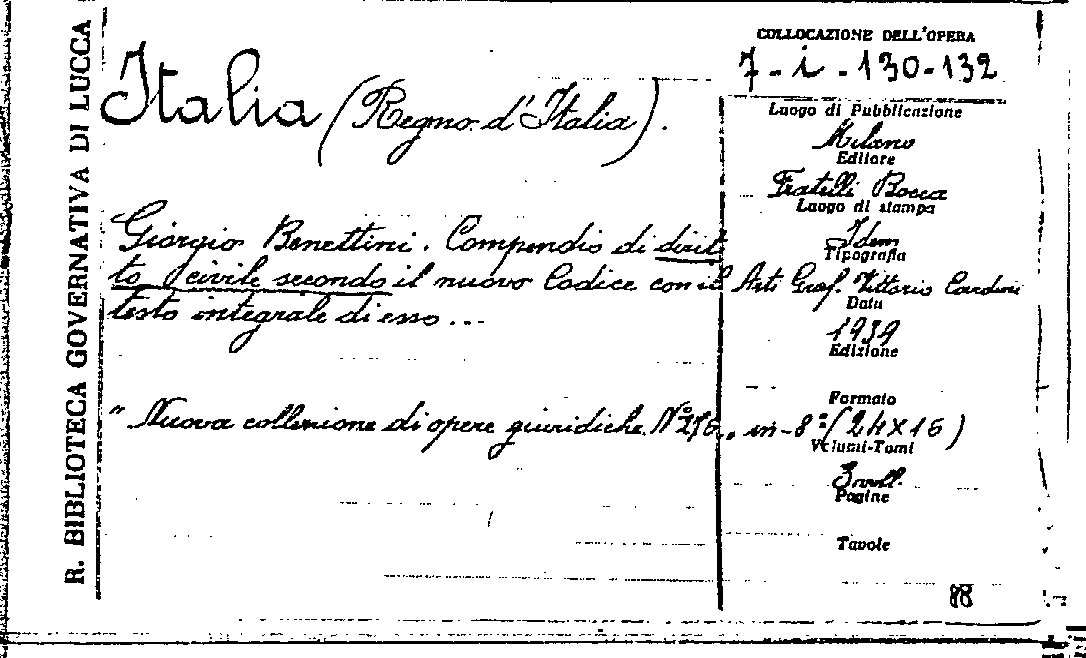 R. BIBLIOTECA GOVERNATIVA DI LUCCA
Italia (Regno d'Italia).
Giorgio Benettini. Compendio di dirit
to civile secondo il nuovo Codice con il
testo integrale di esso...
" Nuova collezione di opere giuridiche N° 276 "
COLLOCAZIONE DELL'OPERA
7-i-130-132
Luogo di Pubblicazione
Milano
Editore
Fratelli Bocca
Luogo di stampa
Idem
Tipografia
Arti Graf. Vittorio Cardini
Data
1939
Edizione
Formato
in-8° (24x16)
Volumi-Tomi
3 voll.
Pagine
Tavole